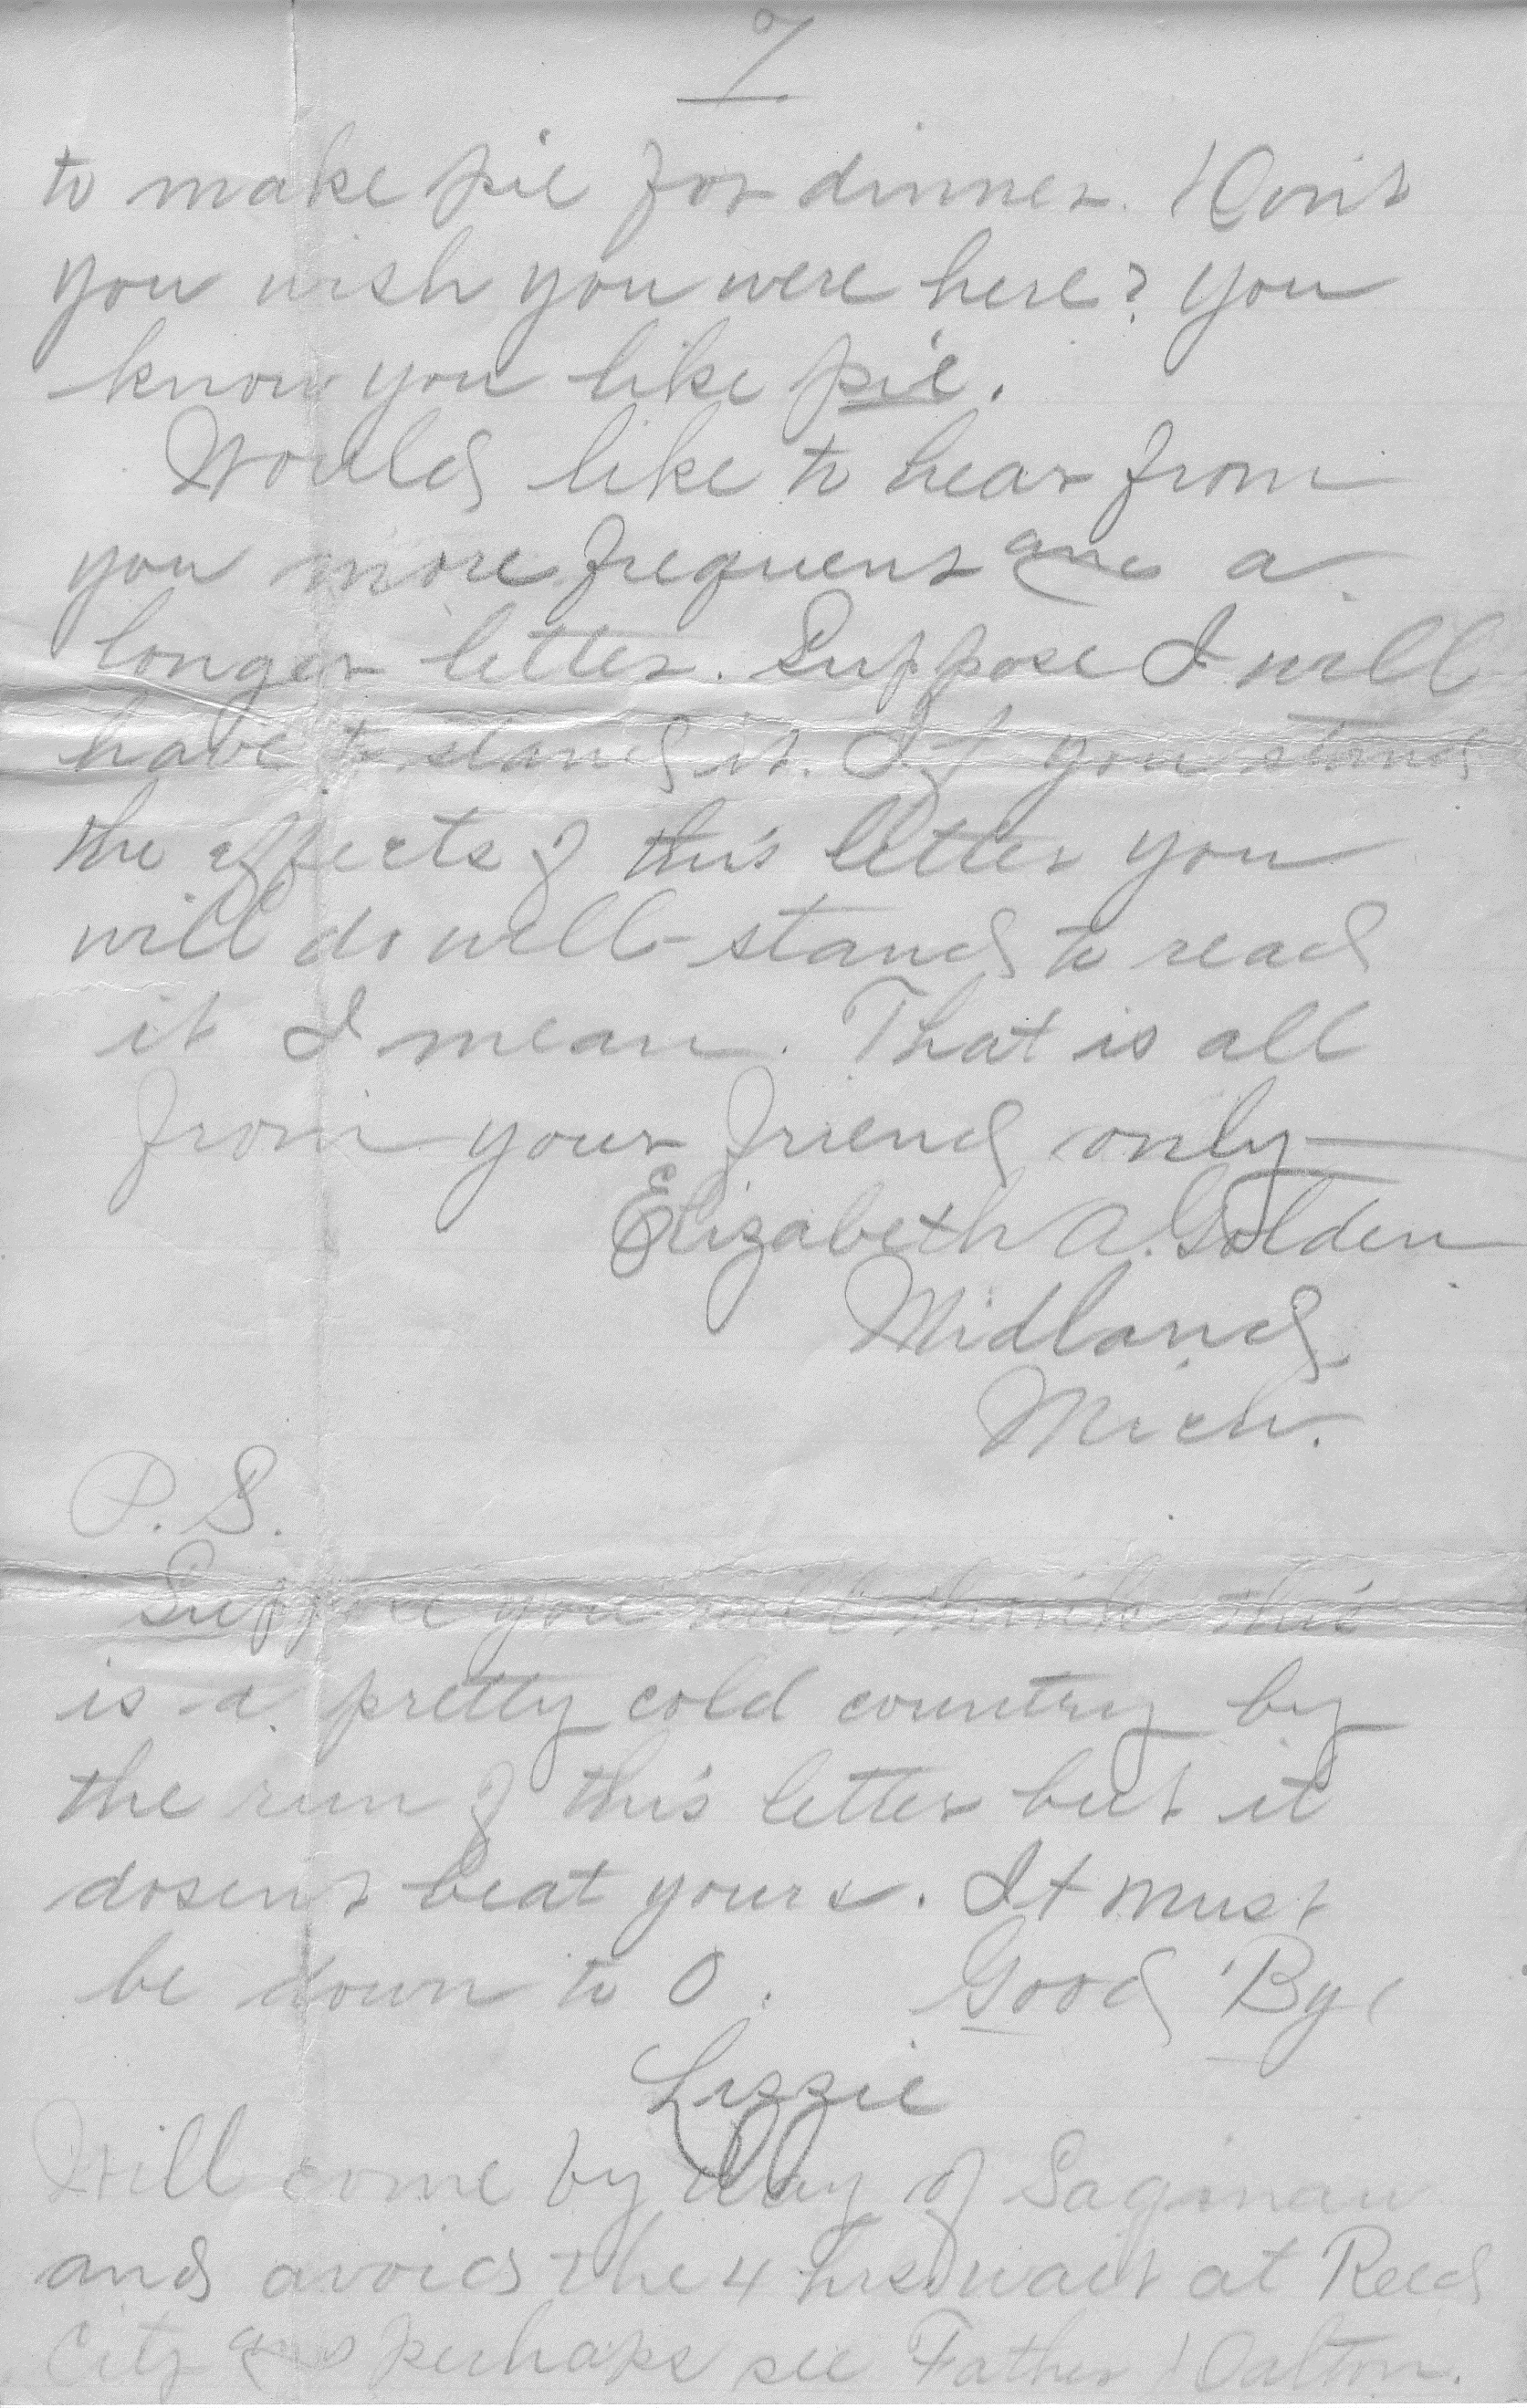 7
to make pie for dinner. Don't
you wish you were here? You
know you like pie.
Would like to hear from
you more frequent and a
longer letter. Suppose I will
have to stand it. If you stand
the effects of this letter you
will do well - stand to read
it I mean. That is all
from your friend only
Elizabeth A. Golden
Midland,
Mich.
P.S.
Suppose you will think this
is a pretty cold country by
the run of this letter but it
dosent beat yours. It must
be down to 0. Good Bye
Lizzie
Will come by way of Saginaw
and avoid the 4 hrs. wait at Reed
City and perhaps see Father Dalton.